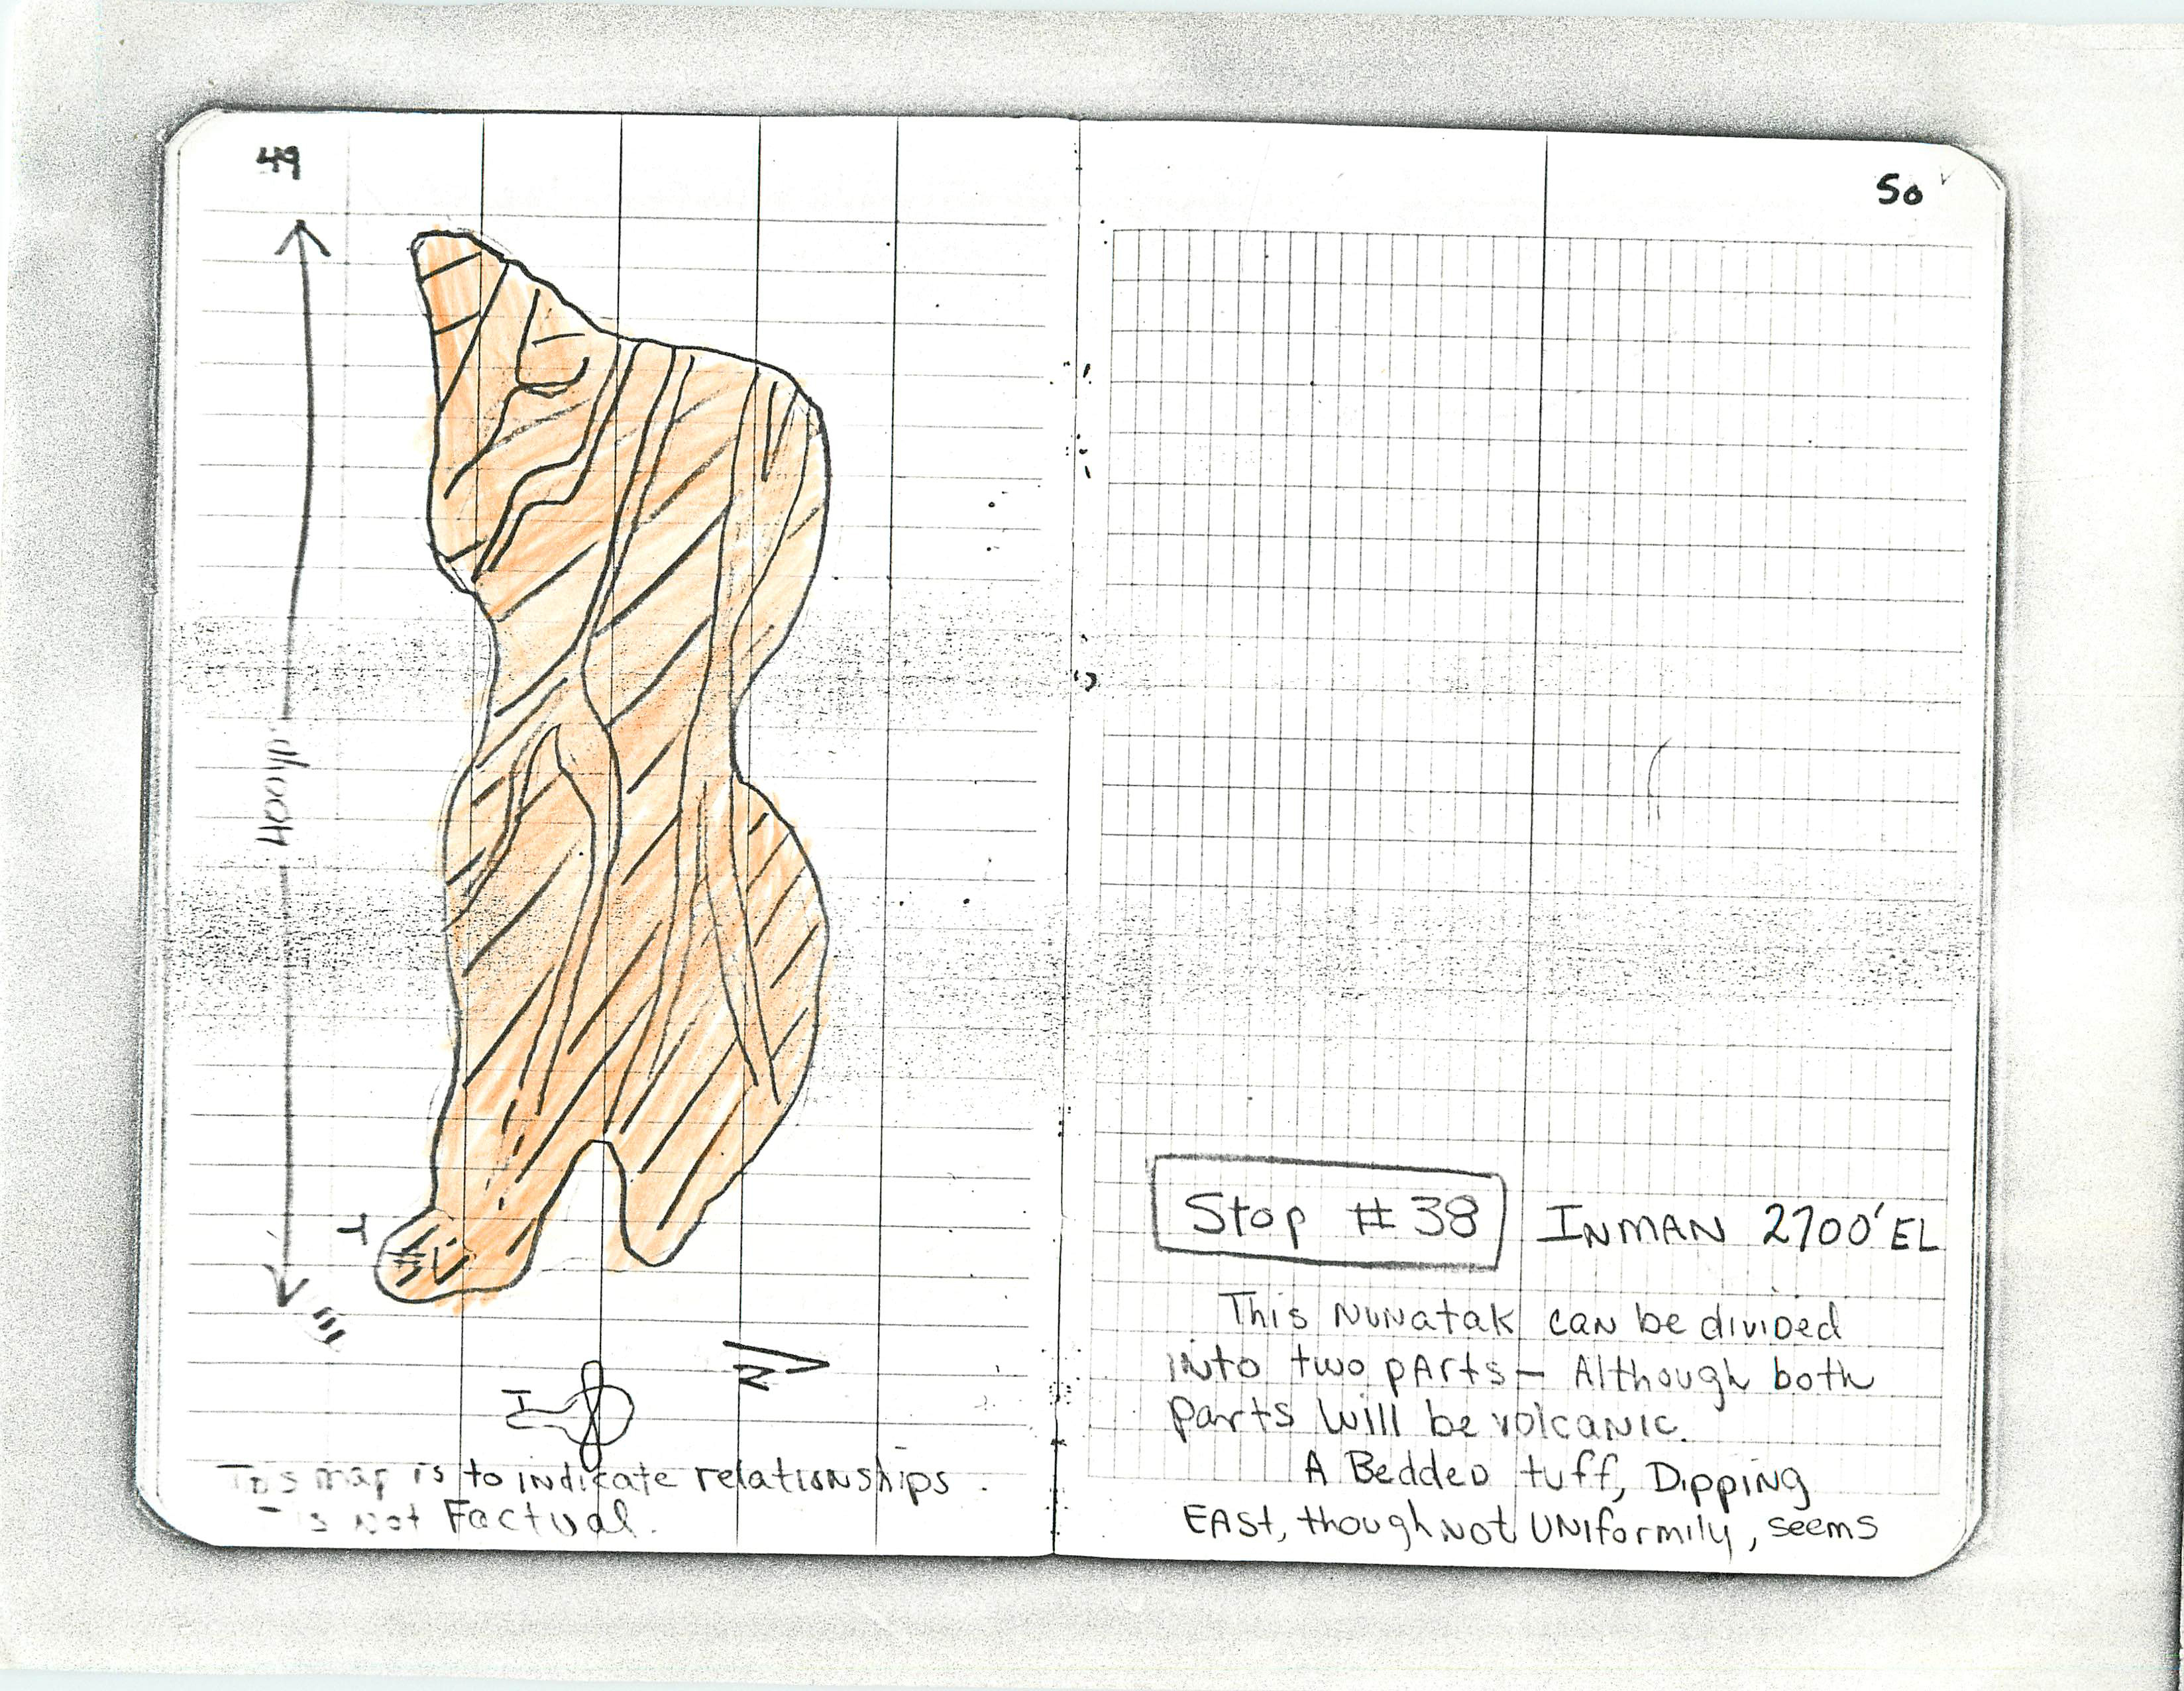 49
400yds
N
This map is to indicate relationships
is not Factual.
50
Stop #38 INMAN 2700' EL
This NUNatak can be divided
into two parts - Although both
parts will be volcanic.
A Bedded tuff, Dipping
EAST, though not UNiformily, seems